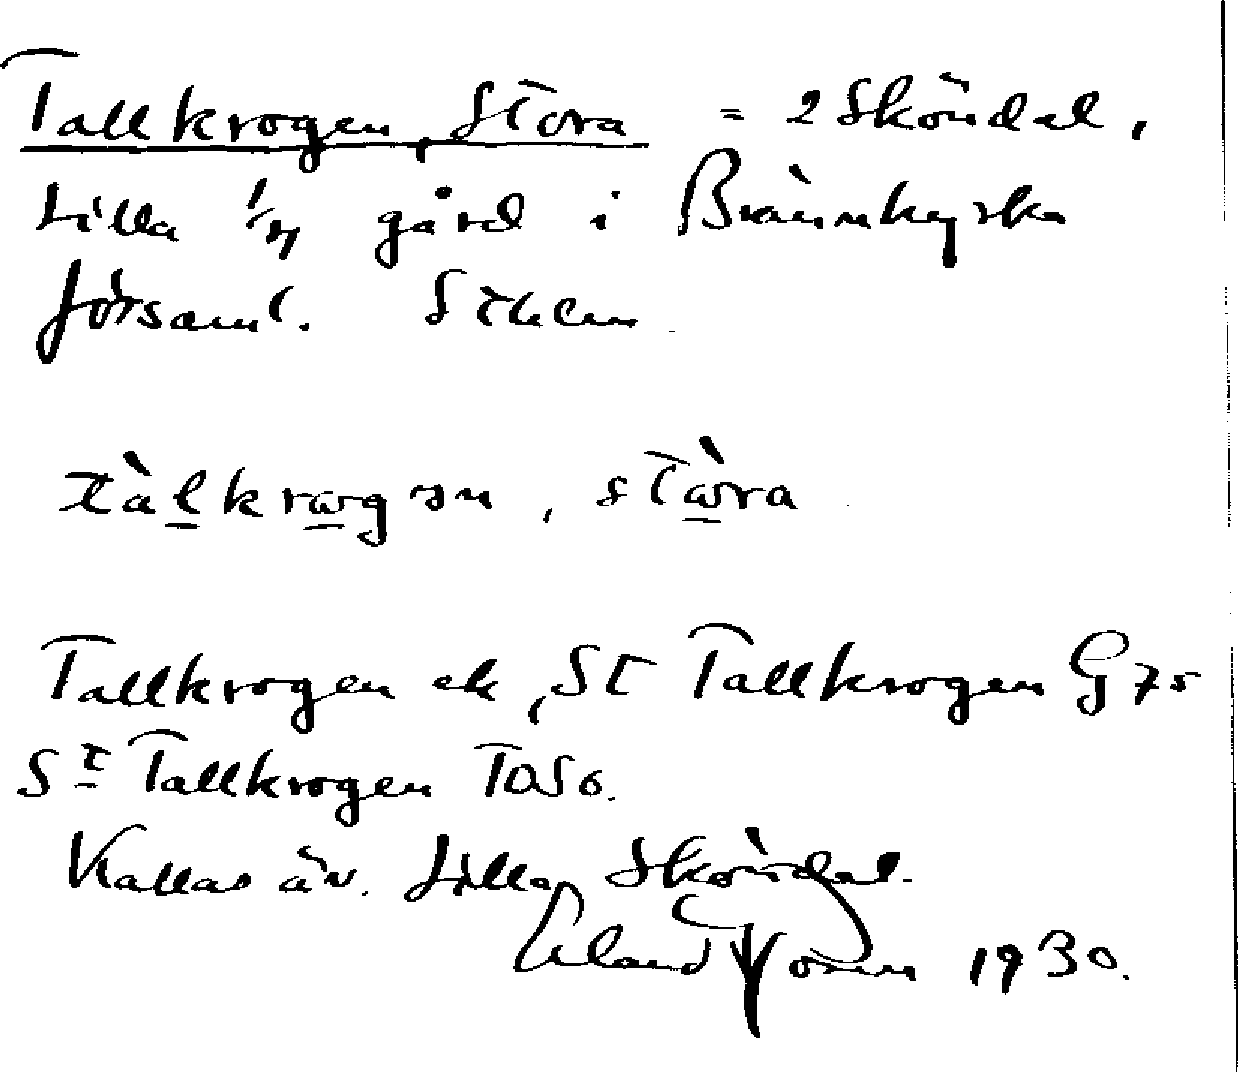 Tallkrogen, Stora = 2 Sköndal,
Lilla 1/4 gård i Brännkyrka
församl. Sthlm.
tàlkrωgən, stὼra
Tallkrogen ek, St Tallkrogen G 75
St Tallkrogen TOS6.
Kallas äv. Lilla Sköndal.
Erland 1930.